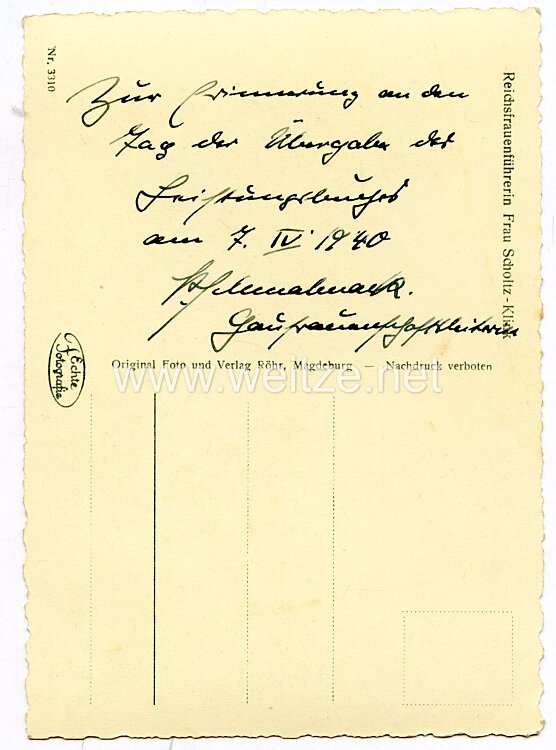 Nr. 3310
Zur Erinnerung an den
Tag der Übergabe des
Leistungsbuches
am 7. IV. 1940
Gaufrauenschaftsleiterin
Reichsfrauenführerin Frau Scholtz-Klink
Echte
Fotografie
Original Foto und Verlag Röhr, Magdeburg — Nachdruck verboten
www.weitze.net